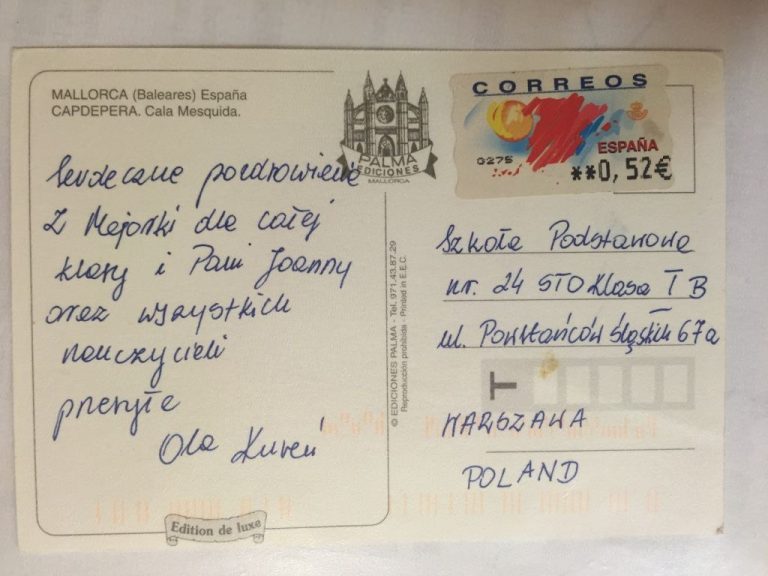 MALLORCA (Baleares) España
CAPDEPERA. Cala Mesquida.
PALMA
EDICIONES
MALLORCA
CORREOS
ESPAÑA
0275
**0,52€
Serdeczne pozdrowienie
Z Majorki dla całej
klasy i Pani Joanny
oraz wszystkich
nauczycieli
przesyła
Ola
© EDICIONES PALMA - Tel. 971.43.87.29
Reproducción prohibida - Printed in E.E.C.
Szkoła Podstawowa
nr. 24 STO Klasa I B
ul. Powstańców Śląskich 67a
T
WARSZAWA
POLAND
Edition de luxe